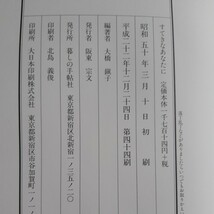 すてきなあなたに　定価本体一七一四円＋税
昭和五十年三月十日　初刷
平成二十二年十二月二十四日　第四十四刷
編著者　大橋鎭子
発行者　阪東宗文
発行所　暮しの手帖社　東京都新宿区北新宿一ノ三五ノ二〇
印刷者　北島義俊
印刷所　大日本印刷株式会社　東京都新宿区市谷加賀町一ノ一ノ